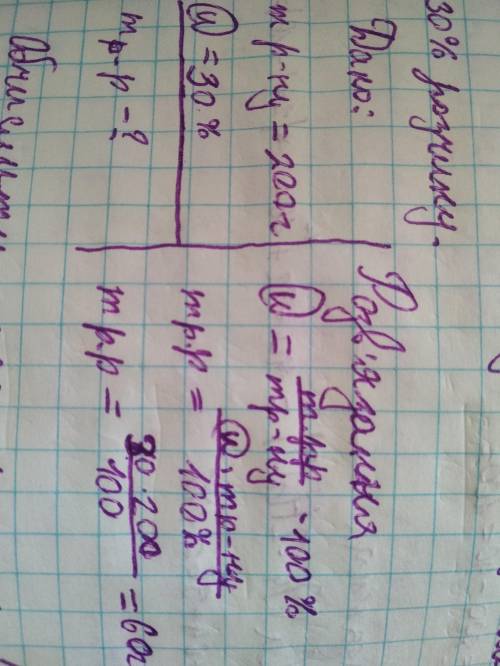 30% розчину.
Дано:
m р-ну = 200г
w = 30%
m р.р - ?
Розв'язання
w = m р.р / m р-ну · 100%
m р.р = w · m р-ну / 100%
m р.р = 30 · 200 / 100 = 60г